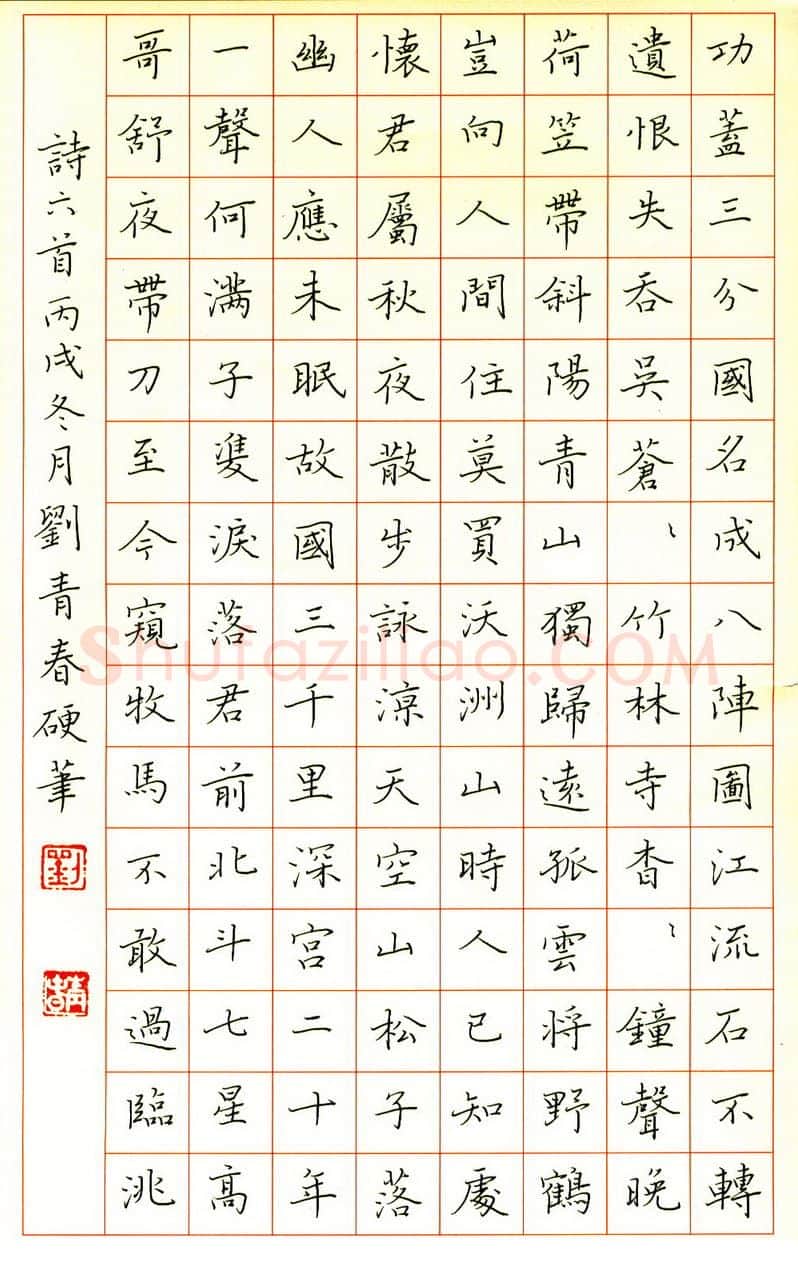 功蓋三分國名成八陣圖江流石不轉
遺恨失吞吳蒼〻竹林寺杳〻鐘聲晚
荷笠帶斜陽青山獨歸遠孤雲將野鶴
豈向人間住莫買沃洲山時人已知處
懷君屬秋夜散步詠涼天空山松子落
幽人應未眠故國三千里深宮二十年
一聲何滿子雙淚落君前北斗七星高
哥舒夜帶刀至今窺牧馬不敢過臨洮
詩六首丙戌冬月劉青春硬筆
劉
Shufaziliao.COM